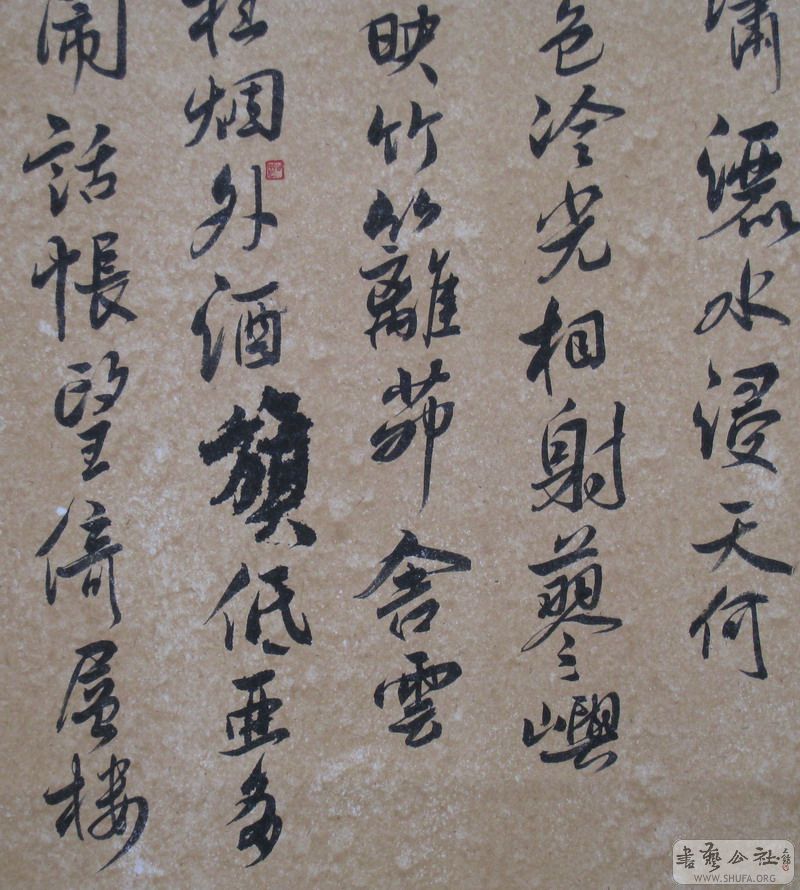 瀟灑水浸天何
色冷光相射蓼嶼
映竹籬茆舍雲
挂烟外酒旗低亞多
閑話悵望倚層樓
書藝公社
WWW.SHUFA.ORG